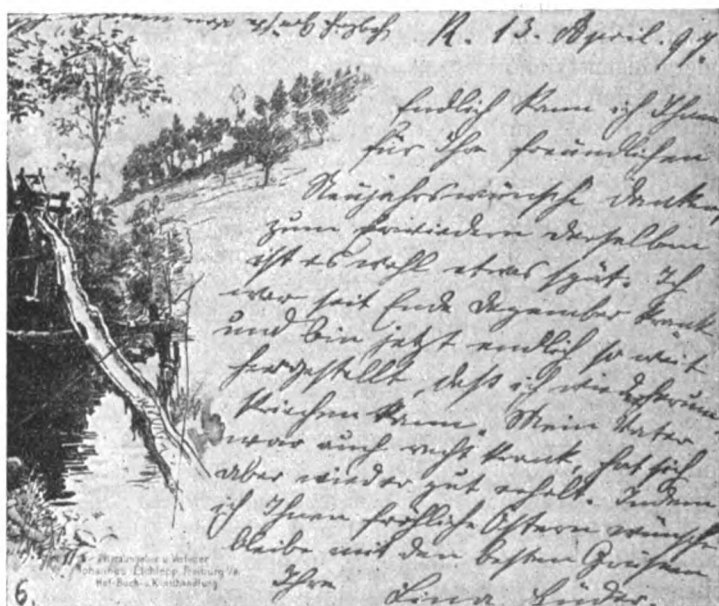 R. 13. April. 97.
Endlich kann ich Ihnen
für Ihre freundlichen
Neujahrswünsche danken,
zum Erwiedern derselben
ist es wohl etwas spät. Ich
war seit Ende Dezember krank
und bin jetzt endlich so weit
hergestellt, daß ich wieder herum
kriechen kann. Mein Vater
war auch recht krank, hat sich
aber wieder gut erholt. Indem
ich Ihnen fröhliche Ostern wünsche
bleibe mit den besten Grüßen
Ihre Lina Lüder
u. Verleger
Johannes Elchlepp, Freiburg i/B.
Hof-Buch- u. Kunsthandlung
6.